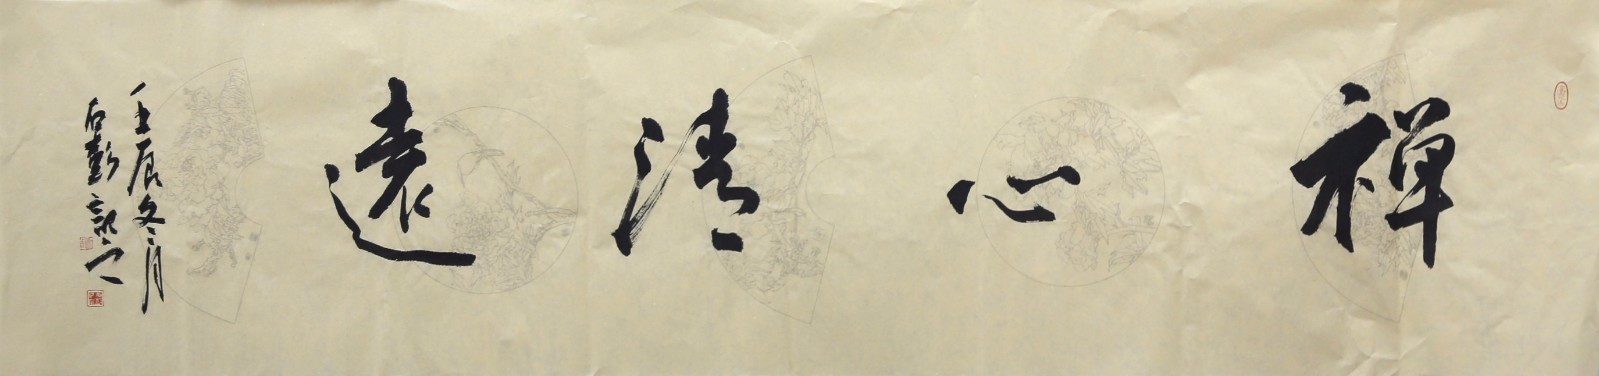 禅心清遠
壬辰冬月
石彭記之